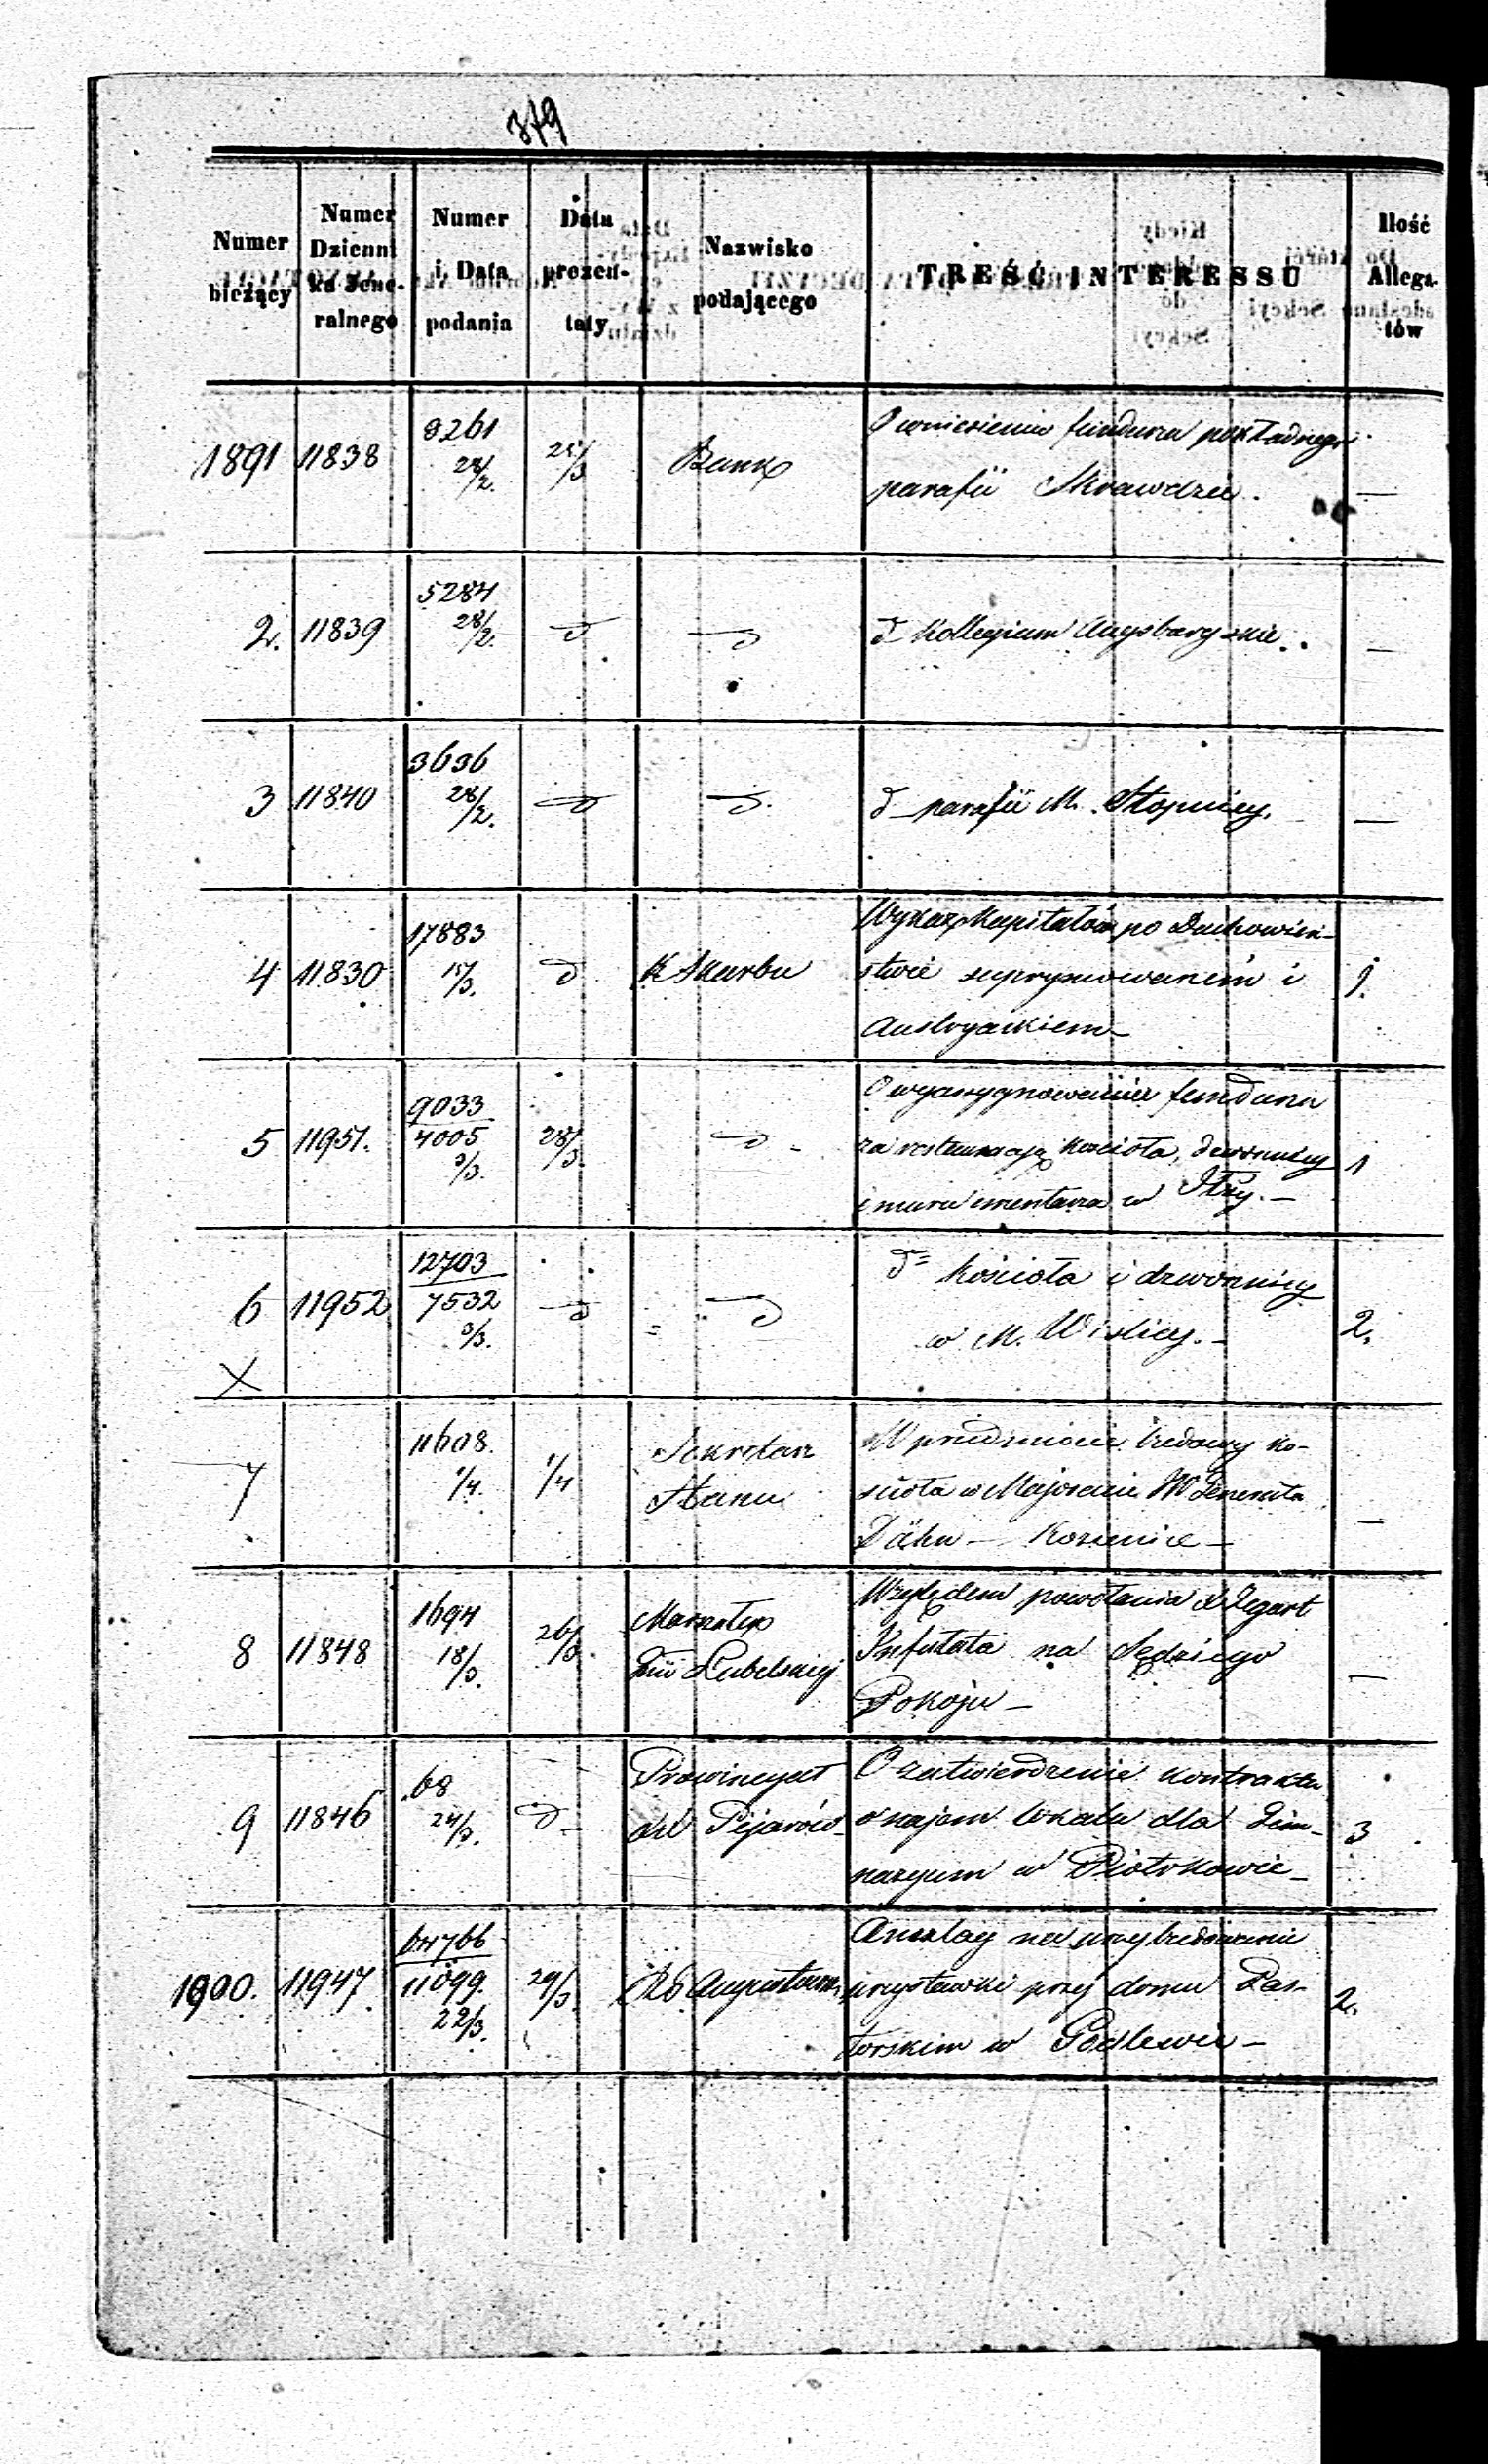 379
Numer bieżący | Numer Dziennika Jeneralnego | Numer i Data podania | Data prezentaty | Nazwisko podającego | TREŚĆ INTERESSU | Ilość Allegatów
1891 | 11838 | 3261 28/2. | 28/3 | Bank | O wniesieniu fundusza pokładnego
parafii Skrawdzu. —
2. | 11839 | 5284 28/2. | d | d | d Kollegium Augsburgskie. —
3 | 11840 | 3636 28/2. | d | d. | d parafii M. Stopnicy. —
4 | 11830 | 17883 15/3. | d | K Skarbu | Wykaz kapitałów po Duchowień-
stwie suprymowanem i | 1.
Austryackiem —
5 | 11951. | 9033 4005 3/3. | 28/3. | d | O wyasygnowanie fundusu
za restauracją kościoła, dzwonnicy | 1
i muru cmentarza w Iłży. —
6 | 11952 | 12703 7532 3/3. | d | d | d° kościoła i dzwonnicy
w M. Wislicy. — | 2.
X
7 | 11608. 1/4. | 1/4 | Sekretarz | W przedmiocie budowy ko-
Stanu | scioła w Majoracie W Generała
Dähn — Kozienice — | —
8 | 11848 | 1694 18/3. | 26/3. | Marszałek | Względem powołania X Zegart
Gnii Lubelskiej | Infułata na Sędziego | —
Pokoju —
9 | 11846 | 68 24/3. | d | Prowincyał | O zatwierdzenie kontraktu
XX Pijarów | o najem lokalu dla Gim- | 3
nazyum w Piotrkowie —
1900. | 11947 | 64766 11099. 22/3. | 29/3. | R G Augustow. | Anszlag na przybudowanie
przystawki przy domu Pas- | 2.
torskim w